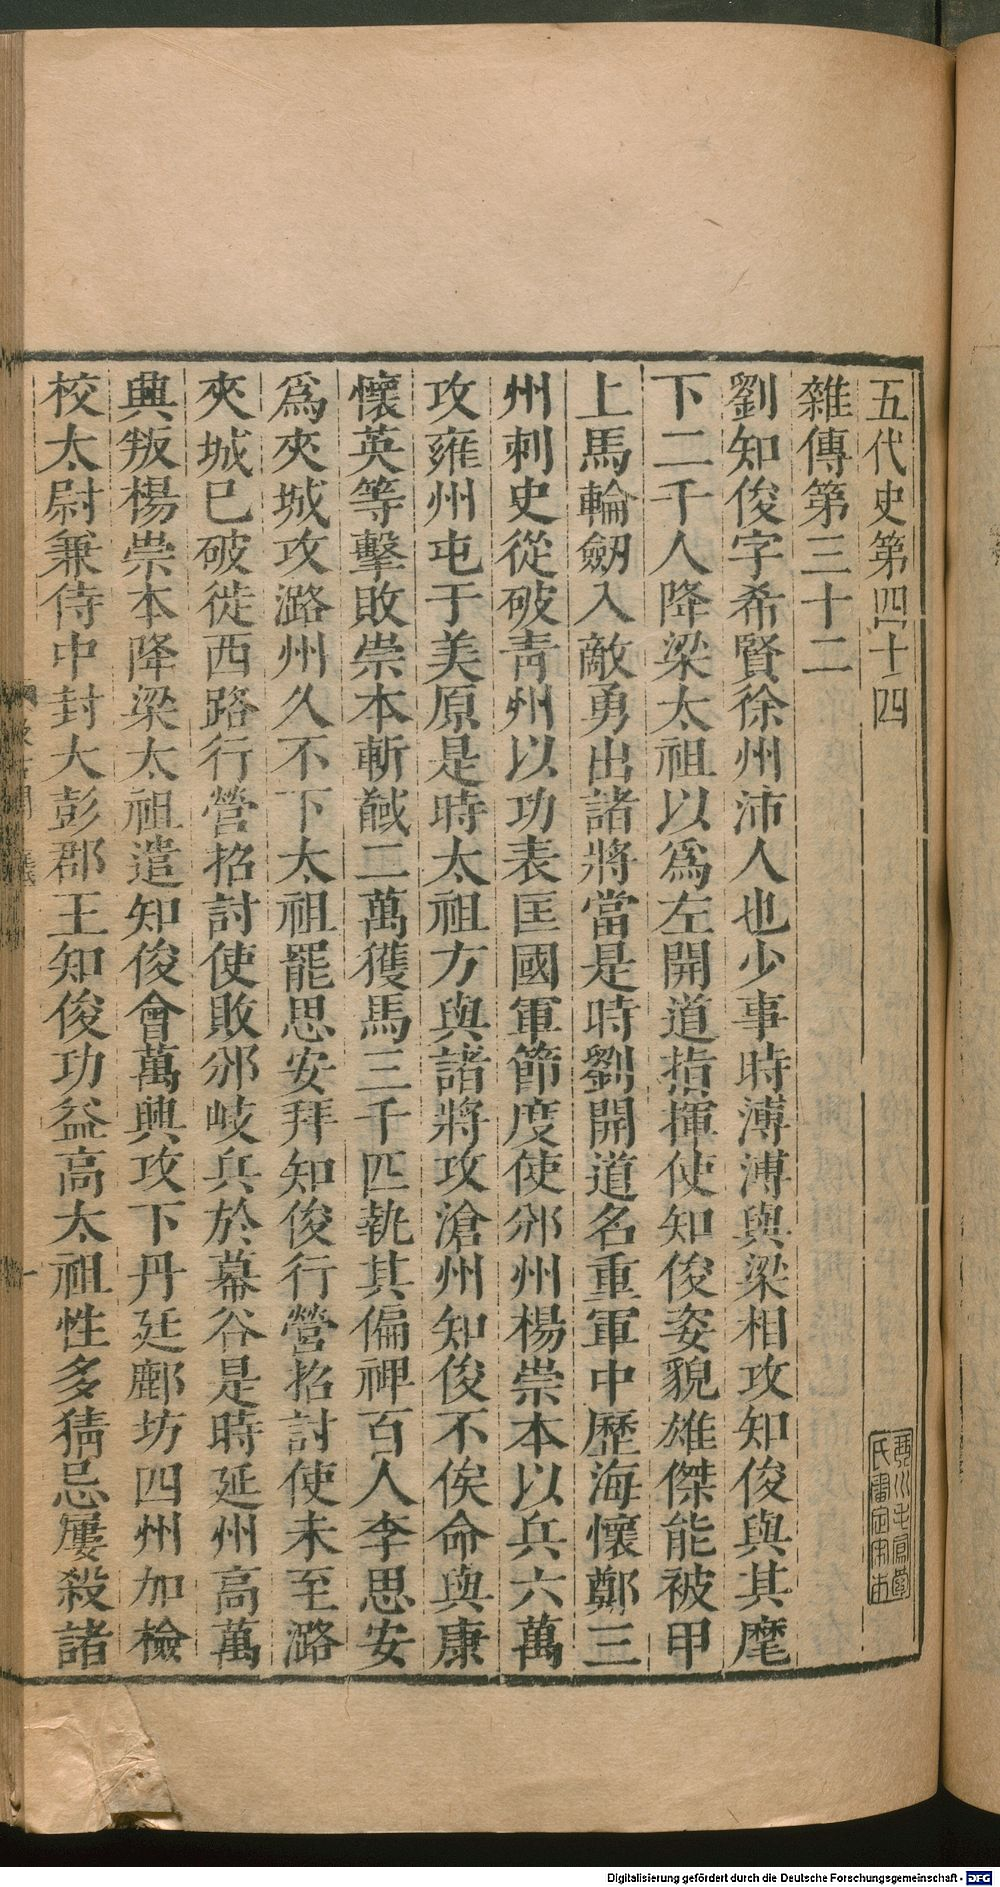 五代史第四十四
雜傳第三十二
劉知俊字希賢徐州沛人也少事時溥溥與梁相攻知俊與其麾
下二千人降梁太祖以爲左開道指揮使知俊姿貌雄傑能被甲
上馬輪劒入敵勇出諸將當是時劉開道名重軍中歷海懷鄭三
州刺史從破青州以功表匡國軍節度使邠州楊崇本以兵六萬
攻雍州屯于美原是時太祖方與諸將攻滄州知俊不俟命與康
懷英等擊敗崇本斬馘二萬獲馬三千匹執其偏裨百人李思安
爲夾城攻潞州久不下太祖罷思安拜知俊行營招討使未至潞
夾城已破徙西路行營招討使敗邠岐兵於幕谷是時延州高萬
興叛楊崇本降梁太祖遣知俊會萬興攻下丹延鄜坊四州加檢
校太尉兼侍中封大彭郡王知俊功益高太祖性多猜忌屢殺諸
一
Digitalisierung gefördert durch die Deutsche Forschungsgemeinschaft - DFG